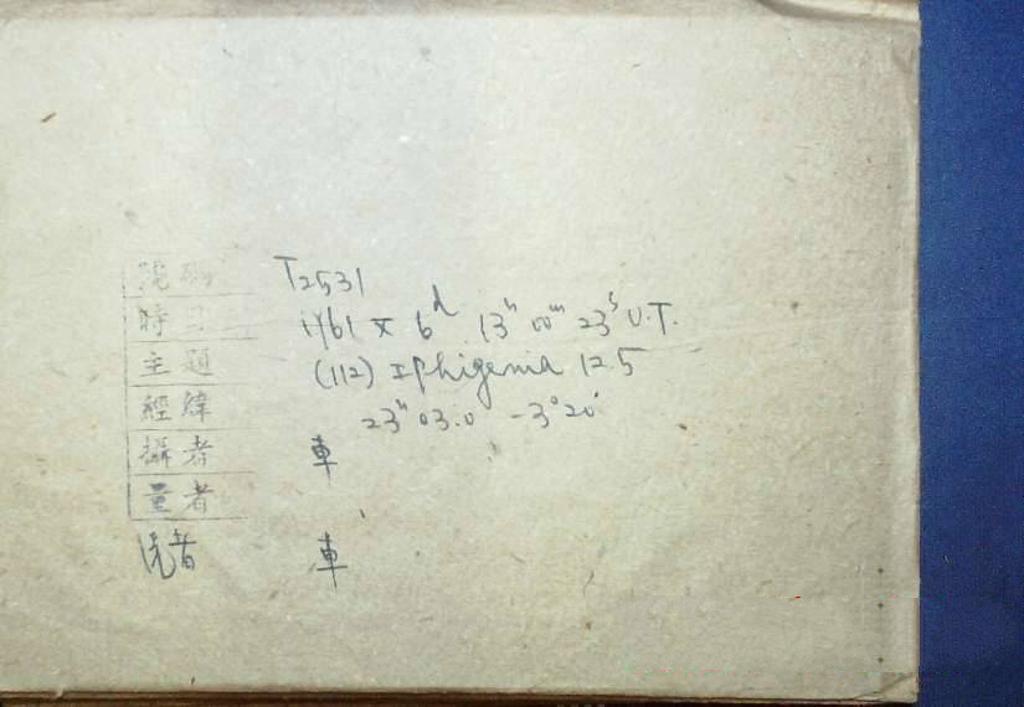 號碼 T2531
時日 1961 X 6ᵈ 13ʰ 00ᵐ 23ˢ U.T.
主題 (112) Iphigenia 12.5
經緯 23ʰ 03.0 -3°20'
攝者 車
量者
洗者 車